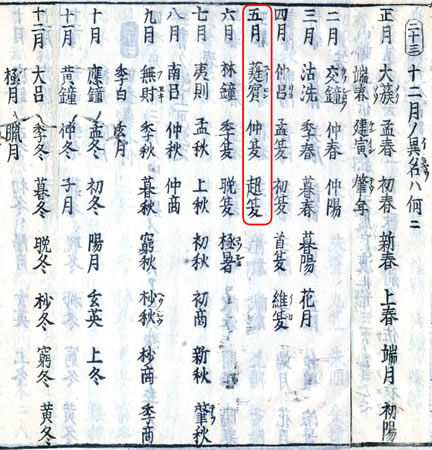 二十三 十二月ノ異名ハ何ニ
正月 大蔟 孟春 初春 新春 上春 端月 初陽
端春 建寅 肇年
二月 交鐘 仲春 仲陽
三月 沽洗 季春 暮春 暮陽 花月
四月 仲呂 孟夏 初夏 首夏 維夏
五月 蕤賓 仲夏 超夏
六月 林鐘 季夏 晩夏 極暑
七月 夷則 孟秋 上秋 初秋 初商 新秋 肇秋
八月 南呂 仲秋 仲商
九月 無射 季秋 暮秋 窮秋 杪秋 杪商 季商
季白 玄月
十月 應鐘 孟冬 初冬 陽月 玄英 上冬
十一月 黄鐘 仲冬 子月
十二月 大呂 季冬 暮冬 晩冬 杪冬 窮冬 黄冬
極月 臘月